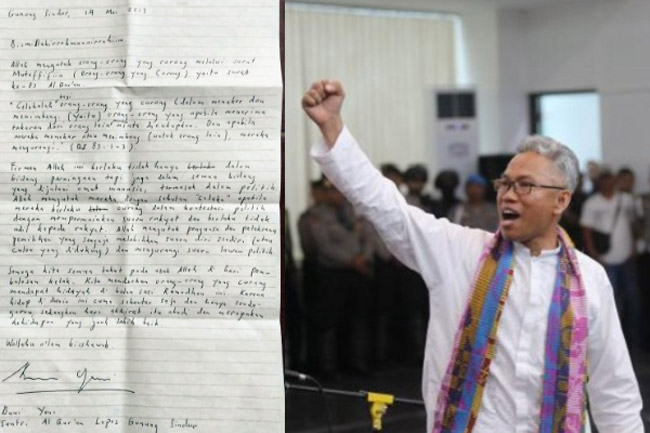 Gunung Sindur, 14 Mei 2019
Bismillahirrahmanirrahiim.
Allah mengutuk orang-orang yang curang melalui surat
Mutoffifiin (Orang-orang yang Curang) yaitu surat
ke-83 Al Qur'an.
"Celakalah bagi orang-orang yang curang (dalam menakar dan
menimbang). (Yaitu) orang-orang yang apabila menerima
takaran dari orang lain minta dicukupkan. Dan apabila
mereka menakar atau menimbang (untuk orang lain), mereka
mengurangi." (QS 83: 1-3)
Firman Allah ini berlaku tidak hanya berlaku dalam
bidang perniagaan tapi juga dalam semua bidang
yang dijalani umat manusia, termasuk dalam politik.
Allah mengutuk mereka dengan sebutan "celaka" apabila
mereka berlaku curang dalam kontestasi politik
dengan mempermainkan suara rakyat dan berlaku tidak
adil kepada rakyat. Allah mengutuk penguasa dan pelaksana
pemilihan yang sengaja melebihkan suara diri sendiri (atau
calon yang didukung) dan mengurangi suara lawan politik.
Semoga kita semua takut pada azab Allah di hari pem-
balasan kelak. Kita mendoakan orang-orang yang curang
mendapat hidayah di bulan suci Ramadhan ini karena
hidup di dunia ini cuma sebentar saja dan hanya senda-
gurau sedangkan hari akhirat itu abadi dan merupakan
kehidupan yang jauh lebih baik.
Wallahu a'lam bisshawab.
Buni Yani
Santri Al Qur'an Lapas Gunung Sindur